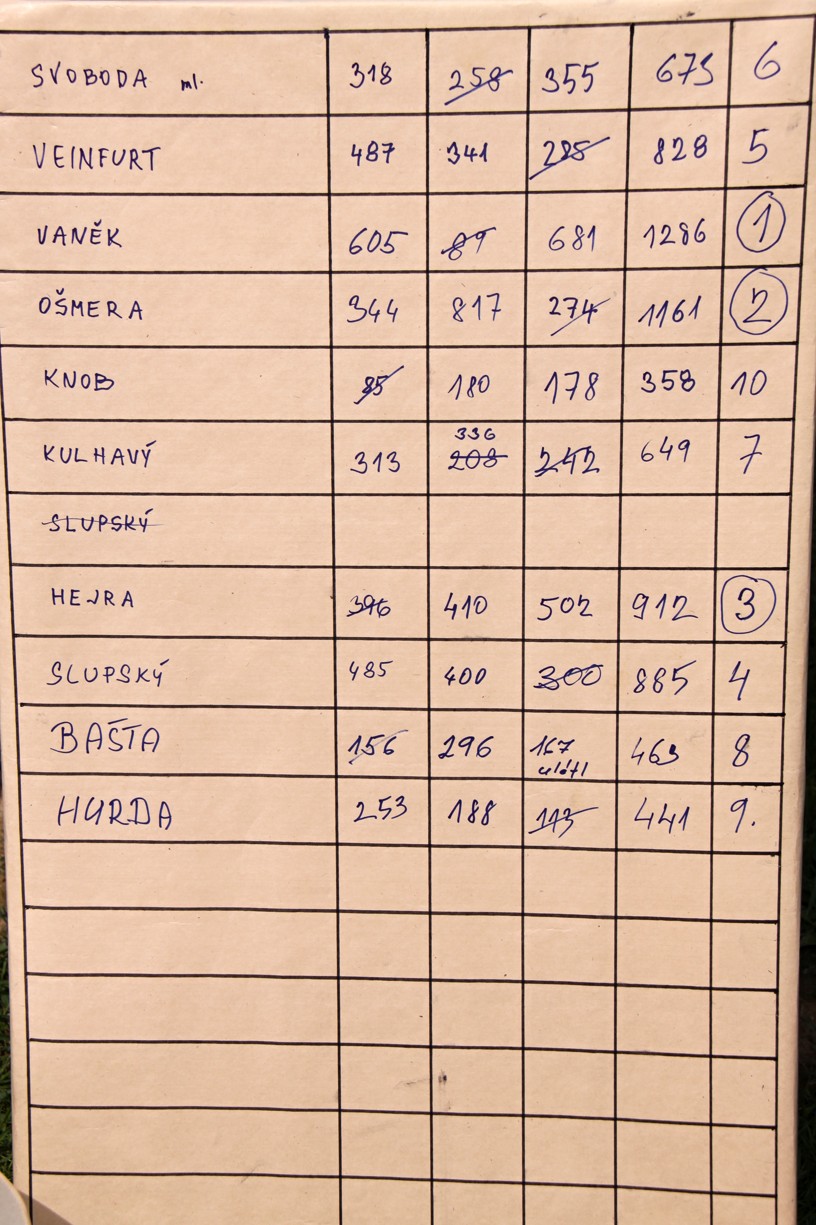 SVOBODA ml. 318 258 355 673 6
VEINFURT 487 341 285 828 5
VANĚK 605 89 681 1286 1
OŠMERA 344 817 274 1161 2
KNOB 85 180 178 358 10
336
KULHAVÝ 313 208 242 649 7
SLUPSKÝ
HEJRA 396 410 502 912 3
SLUPSKÝ 485 400 300 885 4
BAŠTA 156 296 167 463 8
HURDA 253 188 113 441 9.